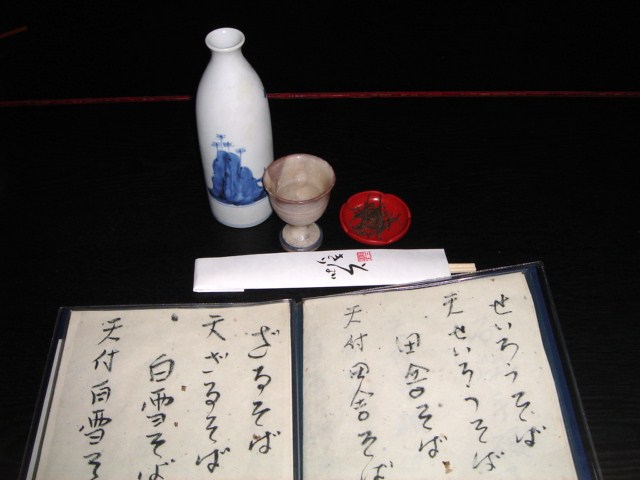 せいろうそば
天せいろうそば
田舎そば
天付田舎そば
ざるそば
天ざるそば
白雪そば
天付白雪そ